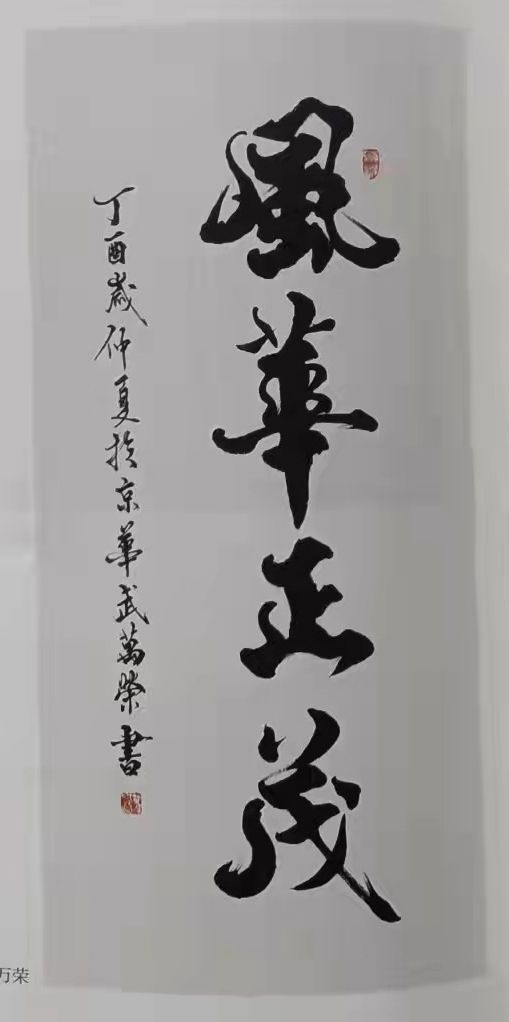 風華正茂
丁酉歲仲夏於京華武萬榮書
万荣